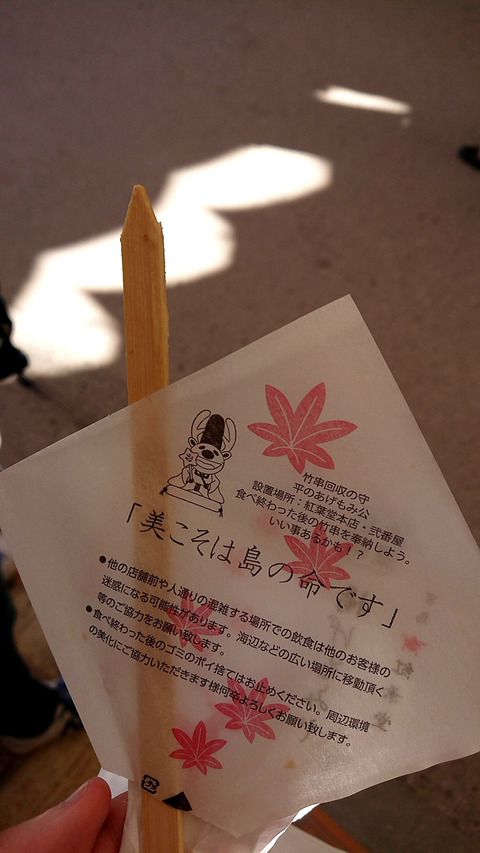 竹串回収の守
平のあげもみ公
設置場所：紅葉堂本店・弐番屋
食べ終わった後の竹串を奉納しよう。
いい事あるかも！？
「美こそは島の命です」
●他の店舗前や人通りの混雑する場所での飲食は他のお客様の
迷惑になる可能性があります。海辺などの広い場所に移動頂く
等のご協力をお願い致します。
●食べ終わった後のゴミのポイ捨てはお止めください。周辺環境
の美化にご協力いただきます様何卒よろしくお願い致します。